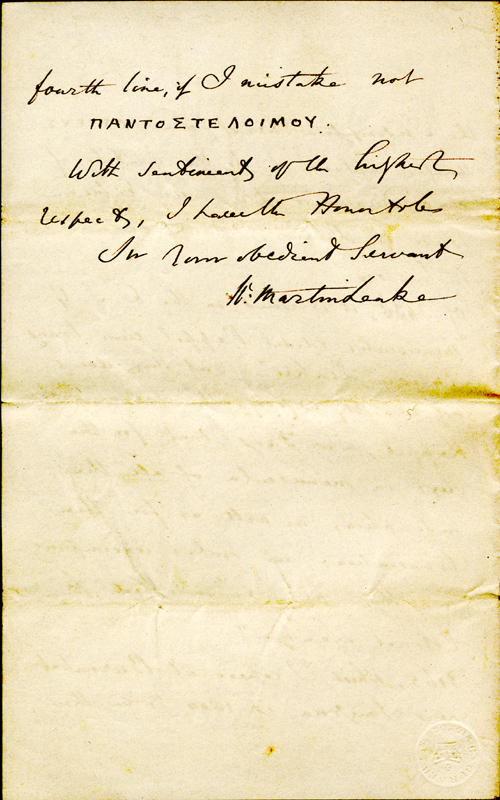 fourth line, if I mistake not
ΠΑΝΤΟΣΤΕΛΟΙΜΟΥ.
With sentiments of the highest
respect, I have the Honor to be
Sir Your obedient Servant
Wm. Martin Leake